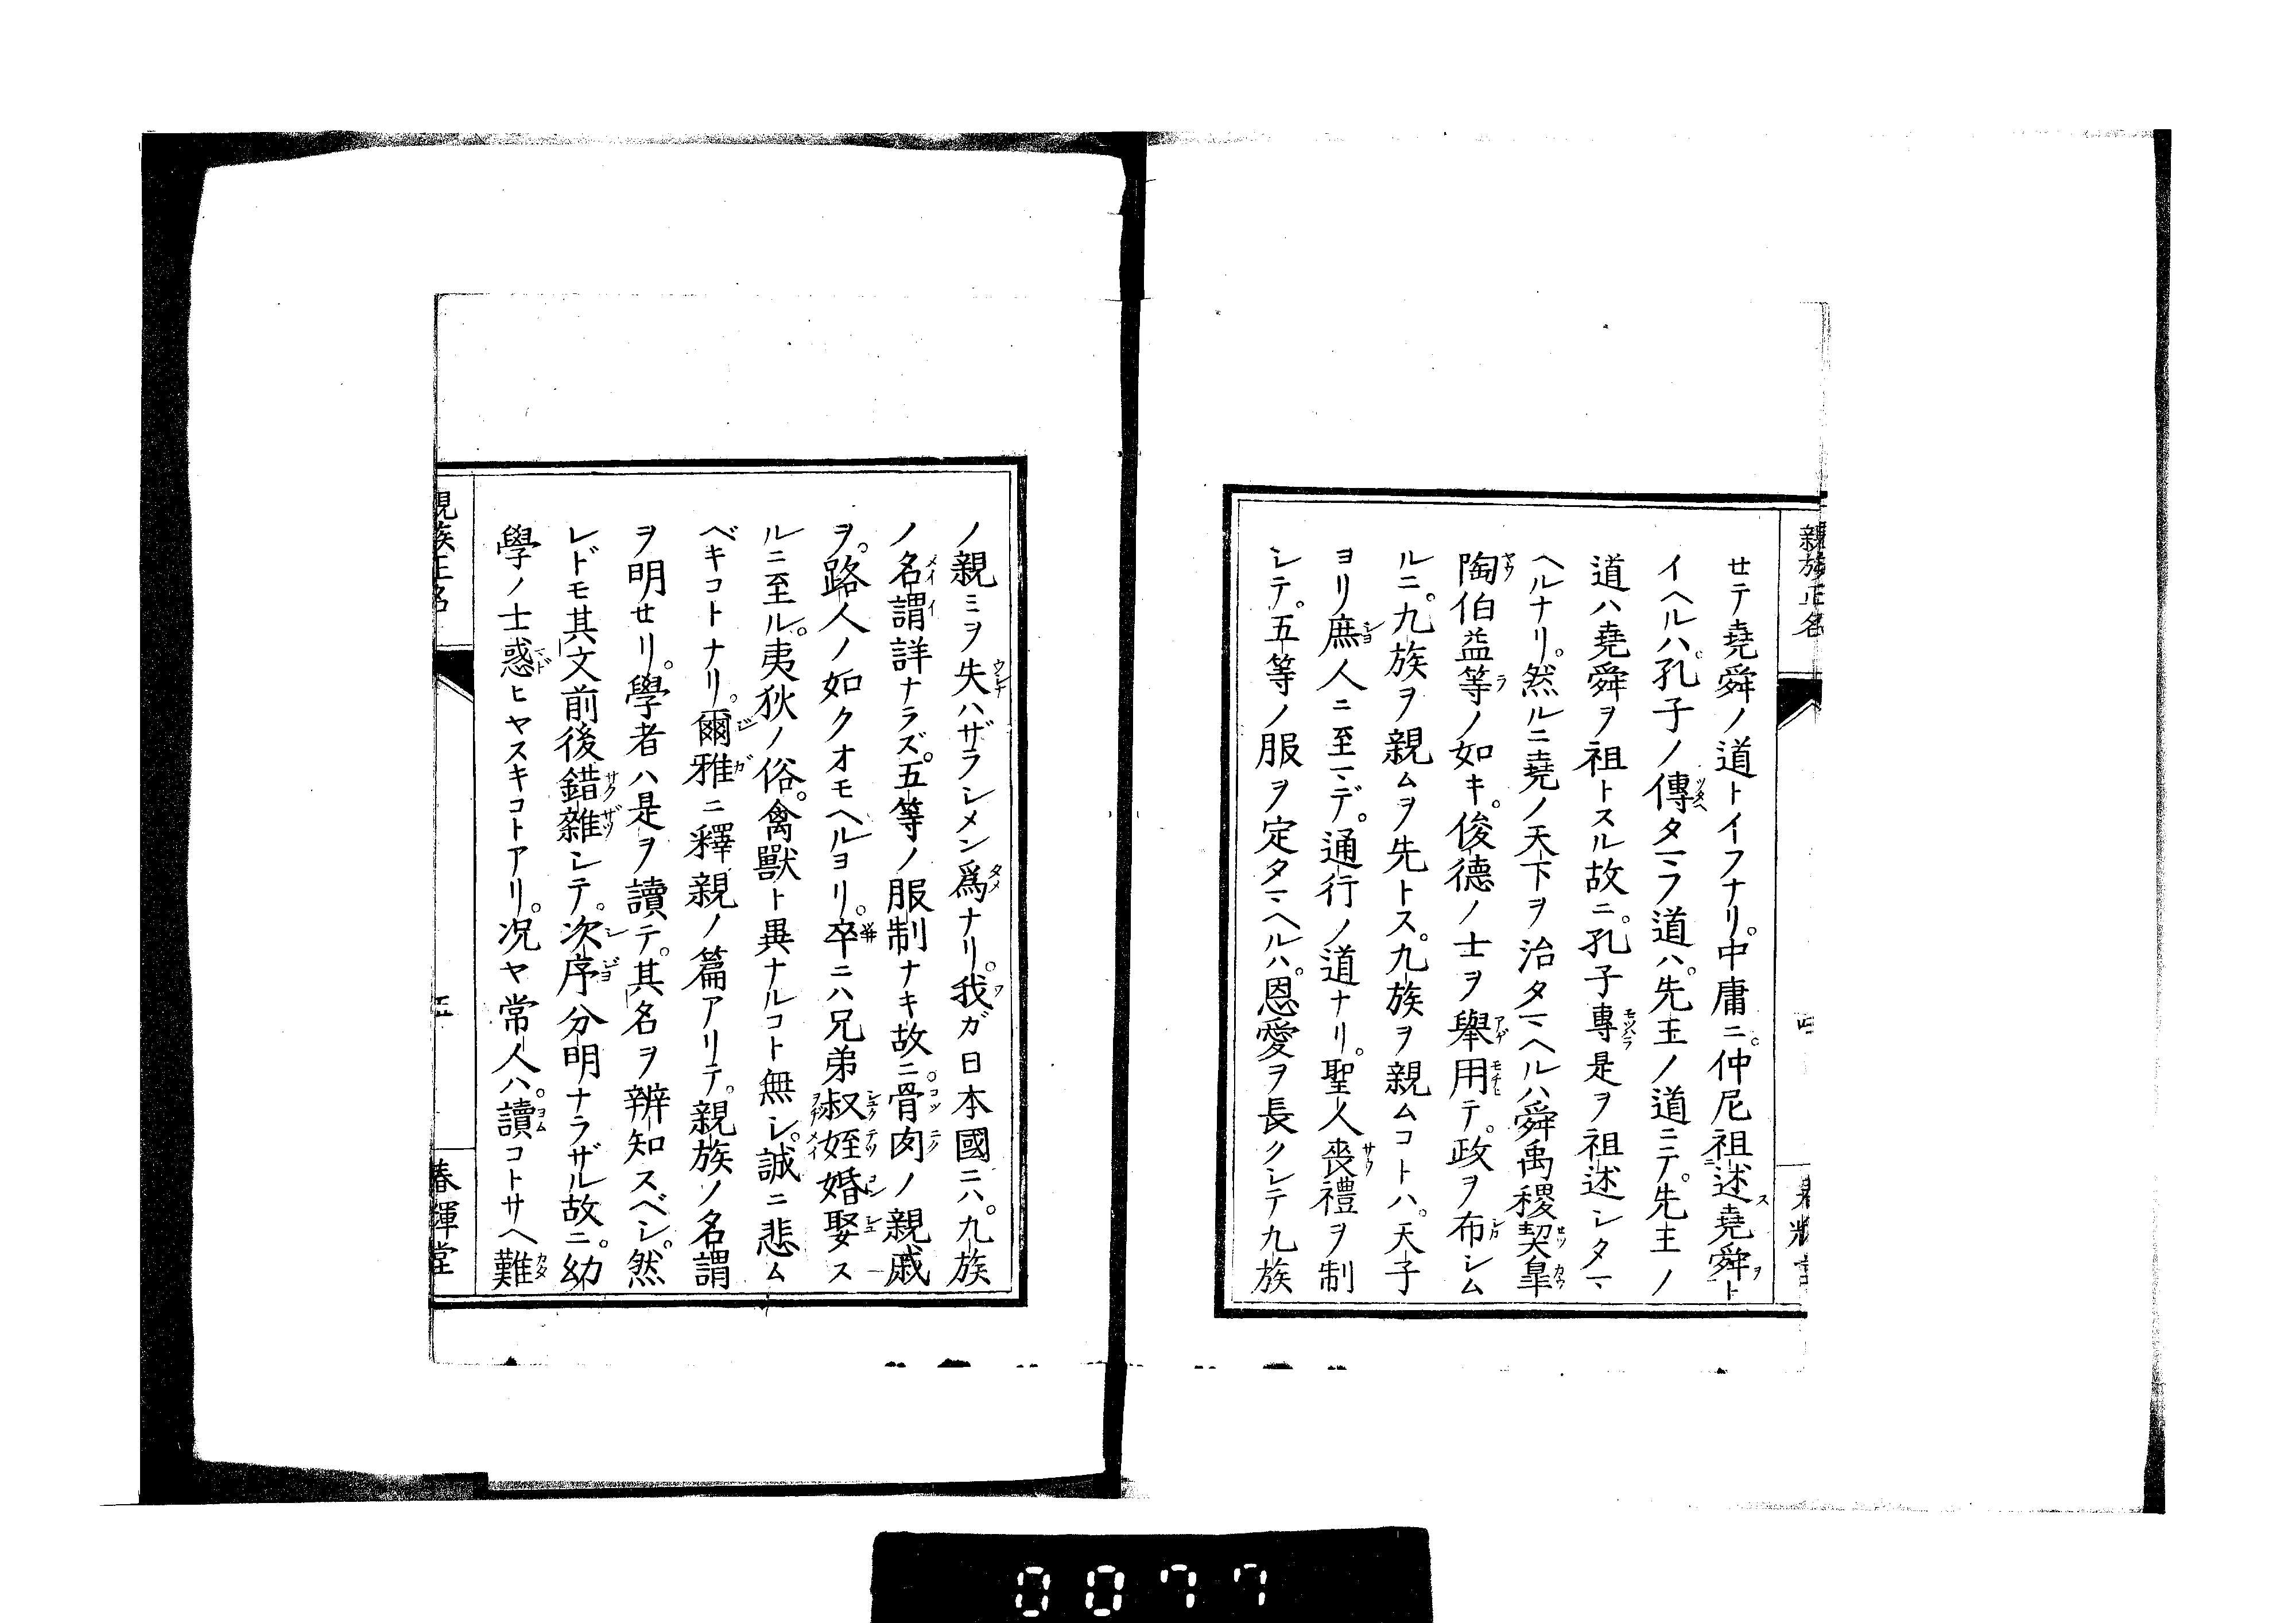 親族正名
サテ堯舜ノ道トイフナリ。中庸ニ。仲尼祖述堯舜ト
イヘルハ。孔子ノ傳タマフ道ハ。先王ノ道ニテ。先王ノ
道ハ堯舜ヲ祖トスル故ニ。孔子專是ヲ祖述シタマ
ヘルナリ。然ルニ堯ノ天下ヲ治タマヘルハ舜禹稷契皐
陶伯益等ノ如キ。俊德ノ士ヲ擧用テ。政ヲ布シム
ルニ。九族ヲ親ムヲ先トス。九族ヲ親ムコトハ。天子
ヨリ庶人ニ至マデ。通行ノ道ナリ。聖人喪禮ヲ制
シテ。五等ノ服ヲ定タマヘルハ。恩愛ヲ長クシテ九族
ノ親ミヲ失ハザラシメン爲ナリ。我ガ日本國ニハ。九族
ノ名謂詳ナラズ。五等ノ服制ナキ故ニ。骨肉ノ親戚
ヲ。路人ノ如クオモヘルヨリ。卒ニハ兄弟叔姪婚娶ス
ルニ至ル。夷狄ノ俗。禽獸ト異ナルコト無シ。誠ニ悲ム
ベキコトナリ。爾雅ニ釋親ノ篇アリテ。親族ノ名謂
ヲ明セリ。學者ハ是ヲ讀テ。其名ヲ辨知スベシ。然
レドモ其文前後錯雜シテ。次序分明ナラザル故ニ。幼
學ノ士惑ヒヤスキコトアリ。況ヤ常人ハ。讀コトサヘ難
親族正名
春輝堂
0077